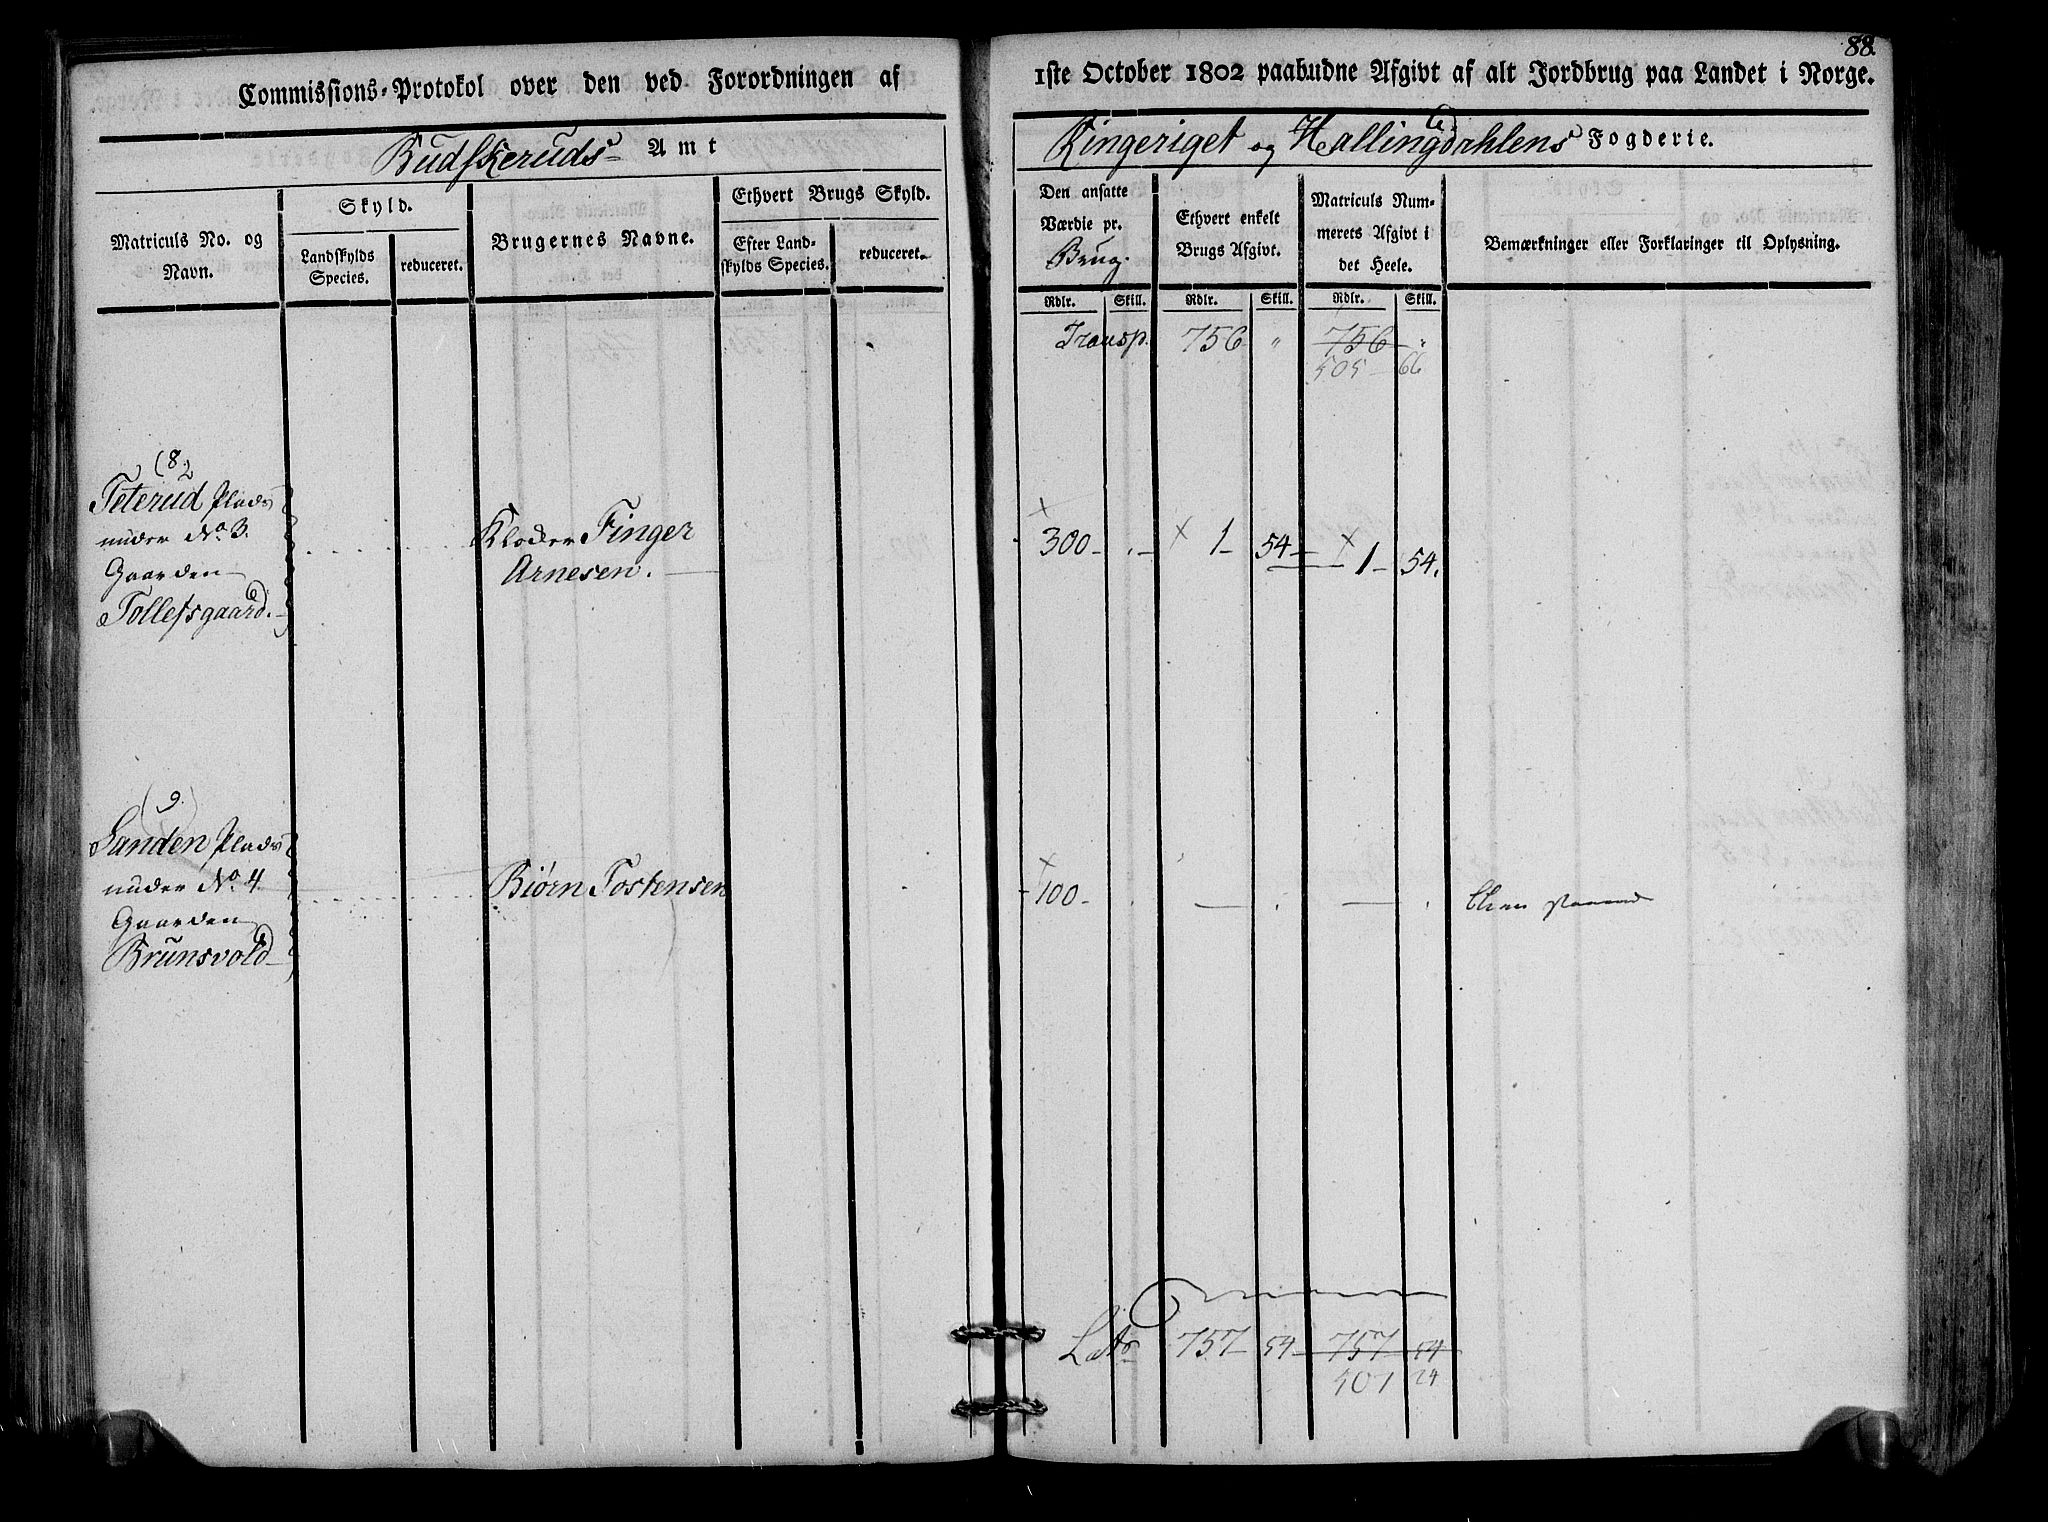 88.
Commissions-Protokol over den ved Forordningen af
1ste October 1802 paabudne Afgivt af alt Jordbrug paa Landet i Norge.
Budskeruds Amt
Ringeriget og Hallingdahlens Fogderie.
Matriculs No. og Navn.
Skyld.
Landskylds Species.
reduceret.
Brugernes Navne.
Ethvert Brugs Skyld.
Efter Landskylds Species.
reduceret.
Den ansatte Værdie pr. Brug.
Ethvert enkelt Brugs Afgivt.
Matriculs Nummerets Afgivt i det Heele.
Bemærkninger eller Forklaringer til Oplysning.
Rdlr. Skill. Rdlr. Skill. Rdlr. Skill.
Transp. 756 " 756 "
505 - 66
(8.)
Teterud Plads
under No. 3.
Gaarden
Tollefsgaard.
Finger
Arnesen.
300 - . - 1 - 54 - 1 - 54.
(9.)
Sanden Plads
under No. 4.
Gaarden
Brunsvold
Biørn Tostensen
100 - . - . - .
Lats 757 54 757 54
507 24